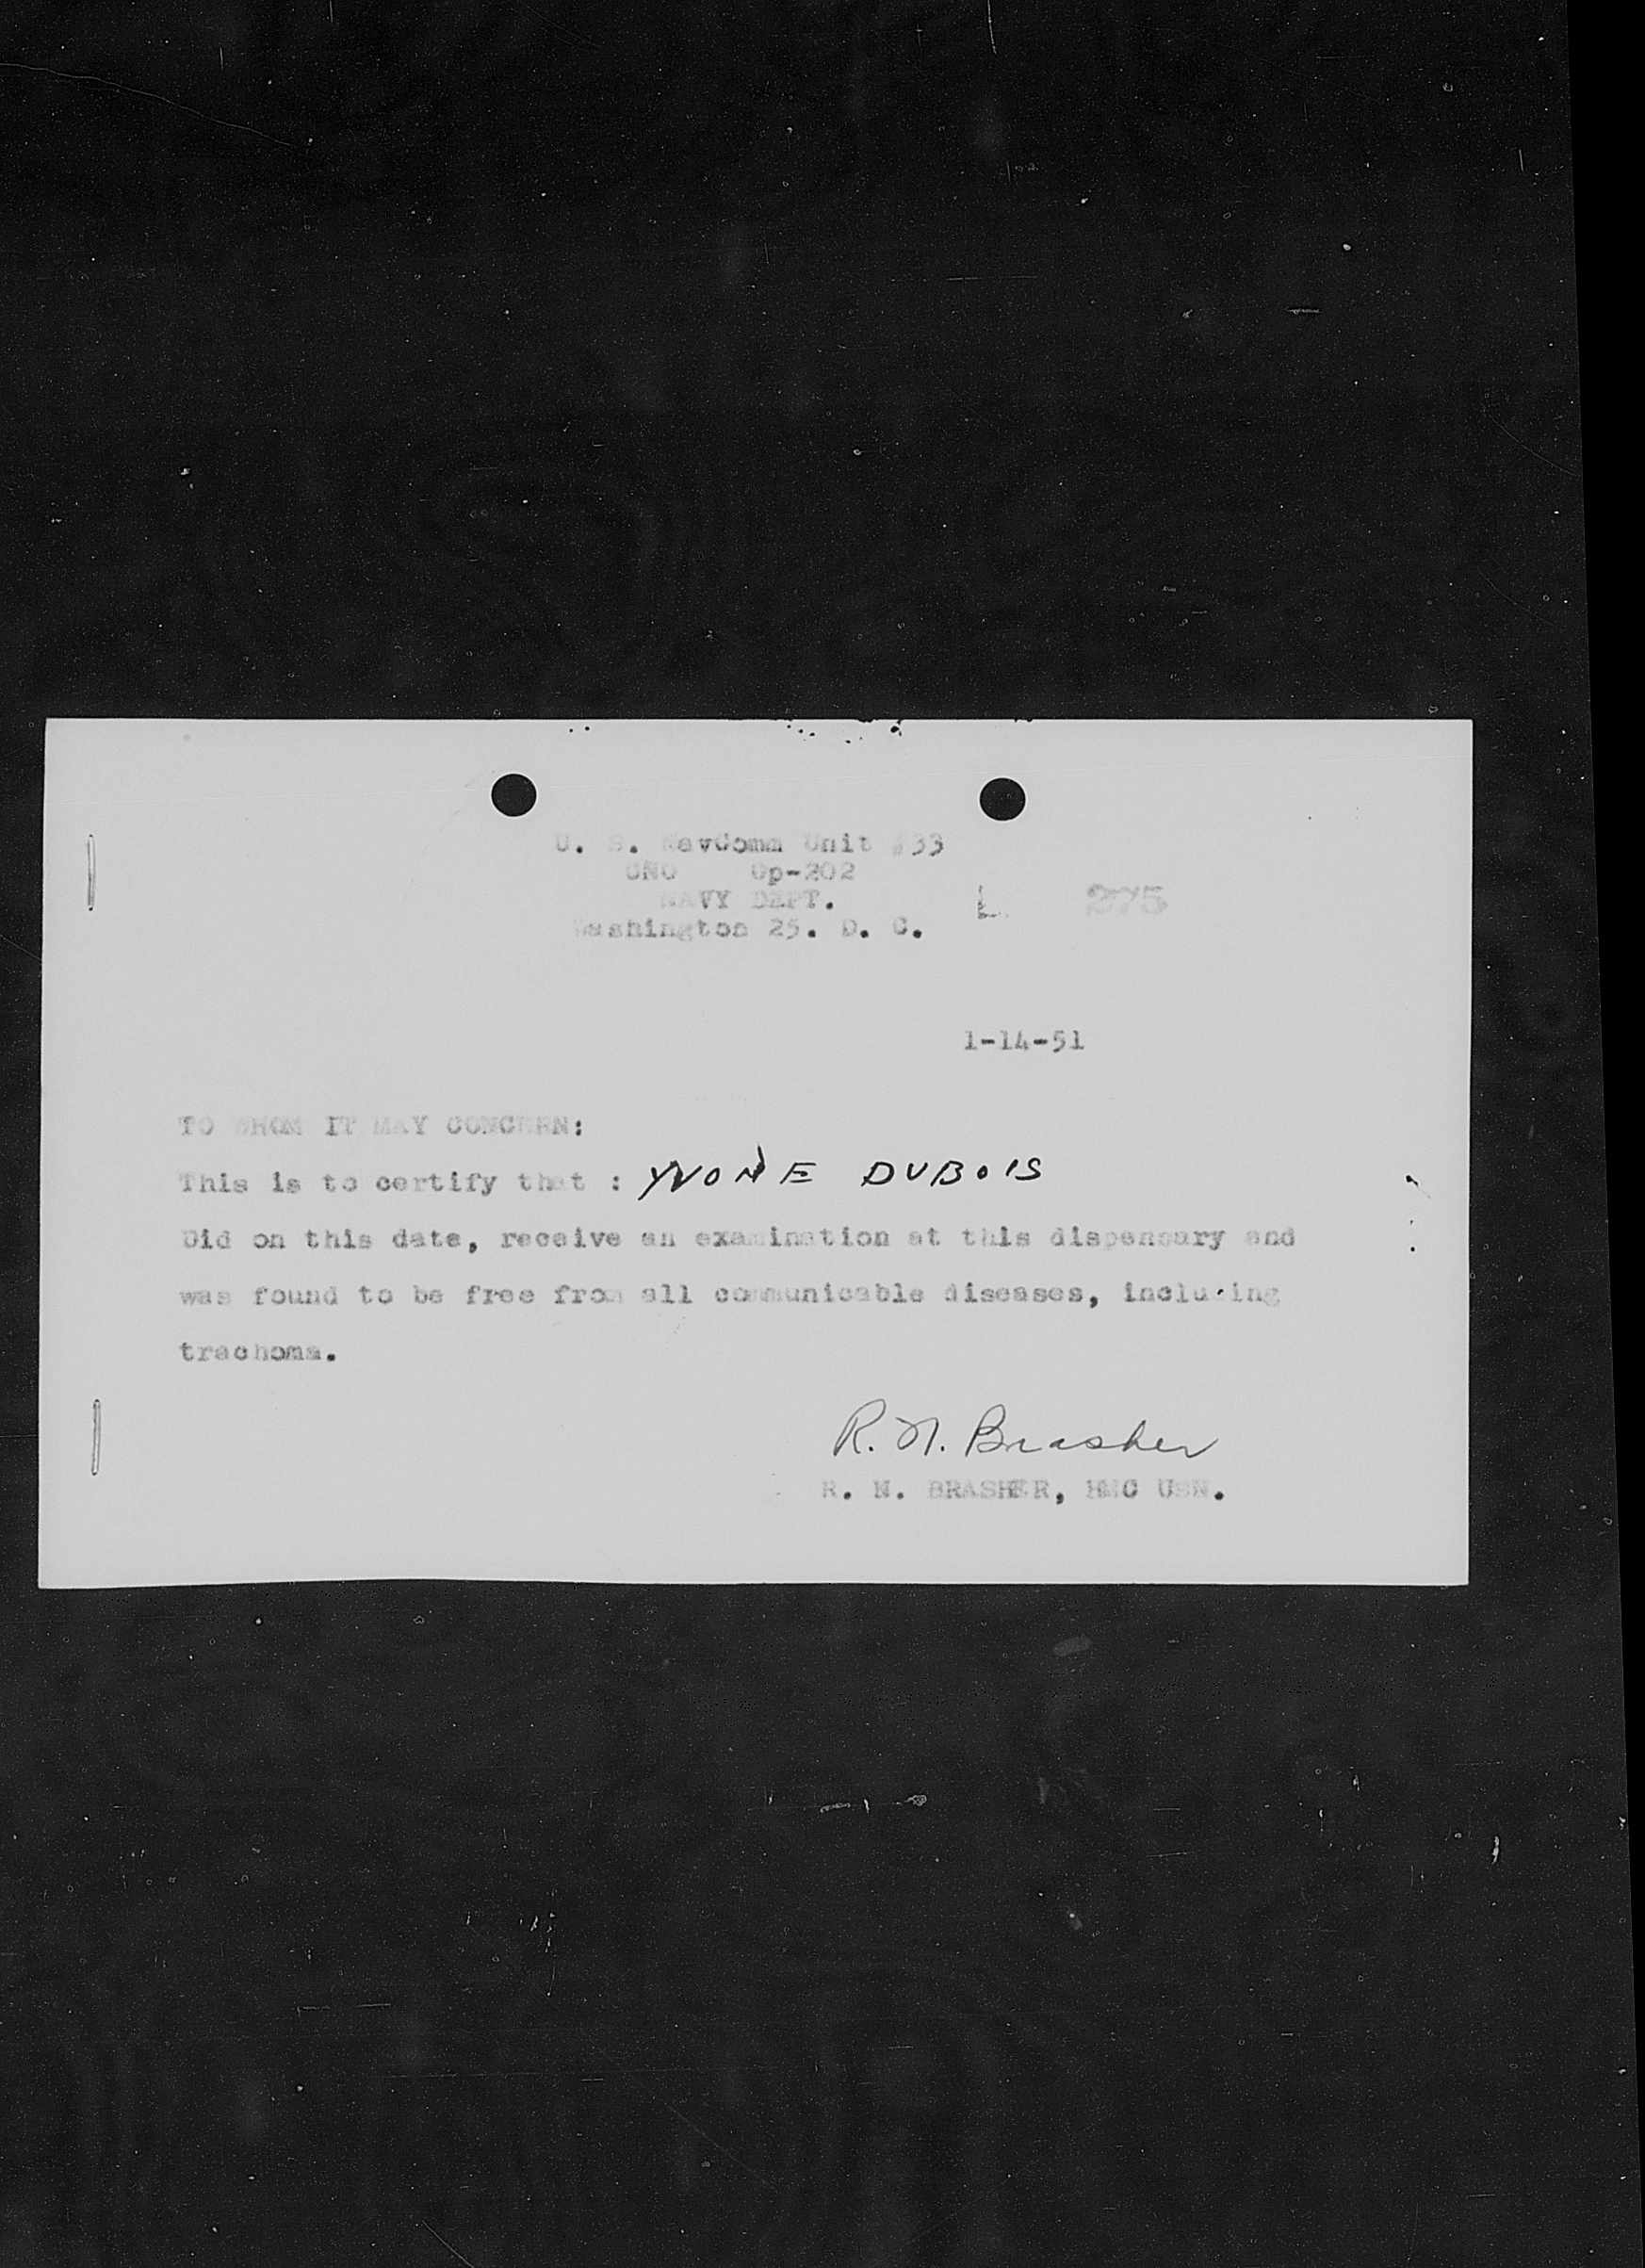 U. S. NavComm Unit #33
CNO Op-202
NAVY DEPT. L. 275
Washington 25. D. C.
1-14-51
TO WHOM IT MAY CONCERN:
This is to certify that : YVONNE DUBOIS
Did on this date, receive an examination at this dispensary and
was found to be free from all communicable diseases, including
trachoma.
R. N. Brasher
R. N. BRASHER, HMC USN.